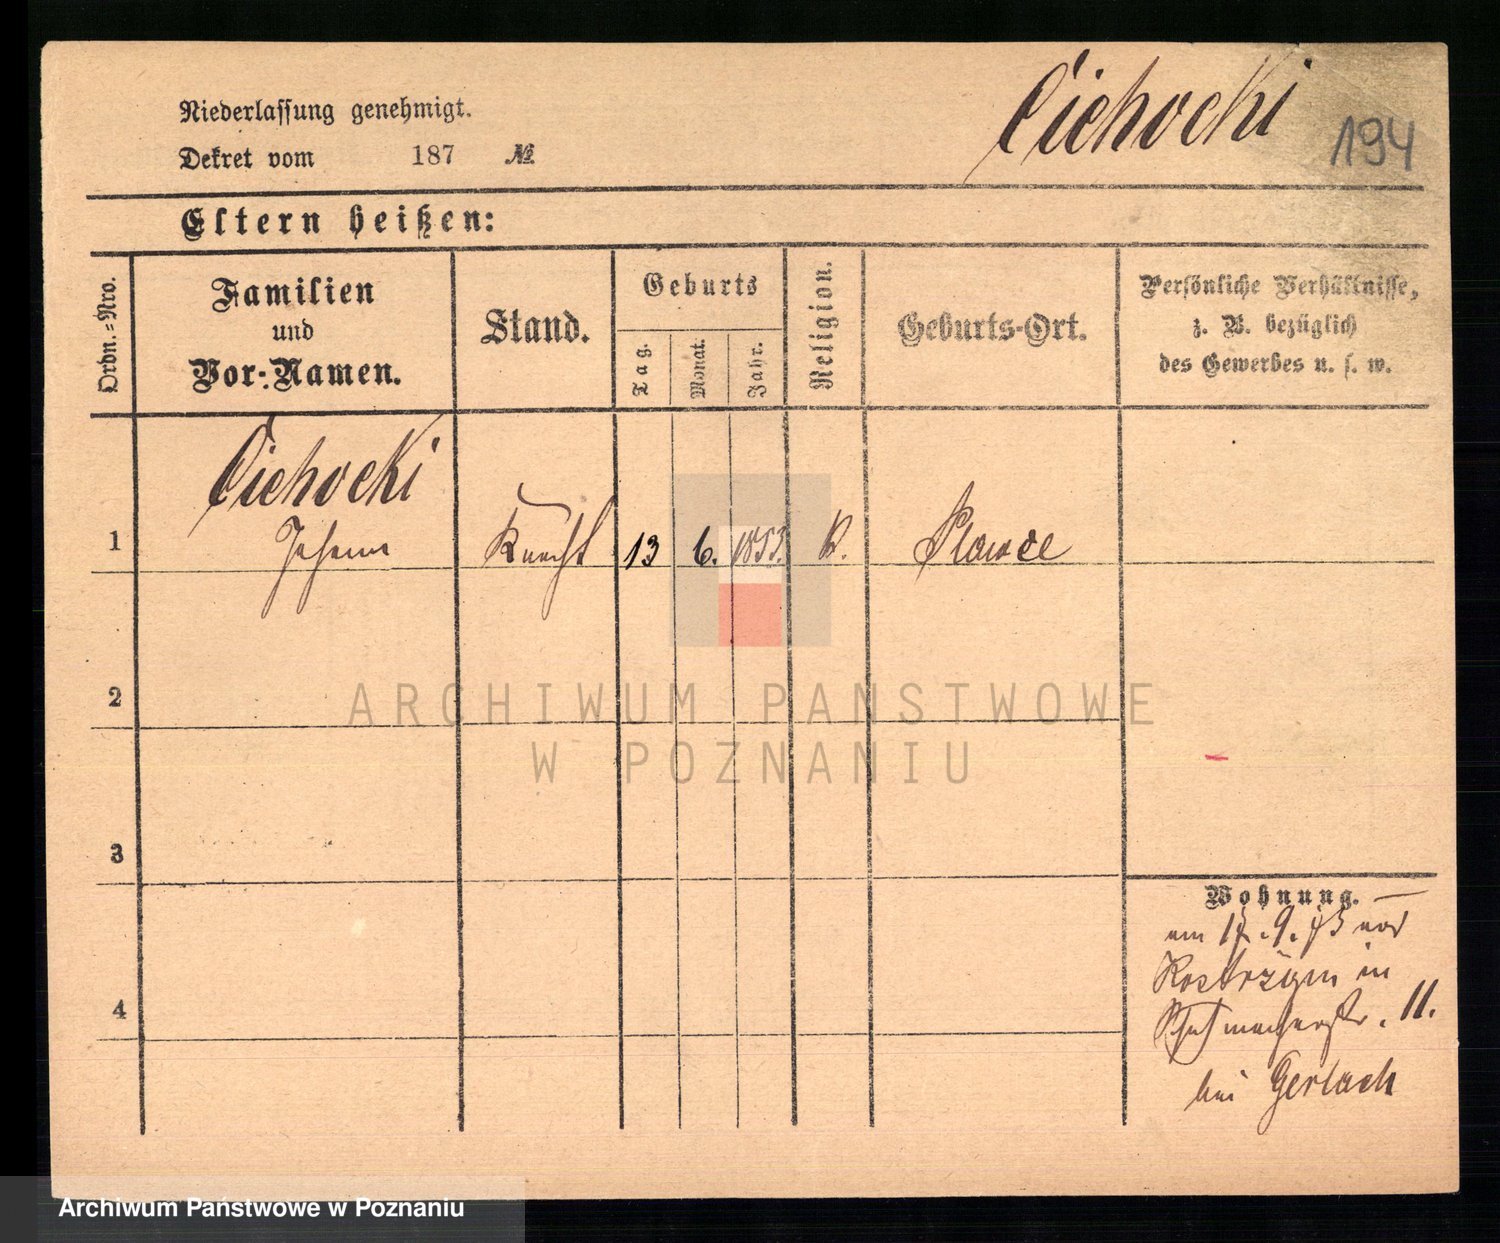 Cichocki
194
Niederlassung genehmigt.
Dekret vom 187 №
Eltern heißen:
Ordn.-Nro.
Familien
und
Vor-Namen.
Stand.
Geburts
Tag.
Monat.
Jahr.
Religion.
Geburts-Ort.
Persönliche Verhältnisse,
z. B. bezüglich
des Gewerbes u. s. w.
Cichocki
1 Johann Knecht 13 6. 1853. K. Plawce
2
ARCHIWUM PAŃSTWOWE
W POZNANIU
3
Wohnung.
am 17.9.73 aus
Kostrzyn in
Schuhmacherstr. 11.
4
bei Gerlach
Archiwum Państwowe w Poznaniu